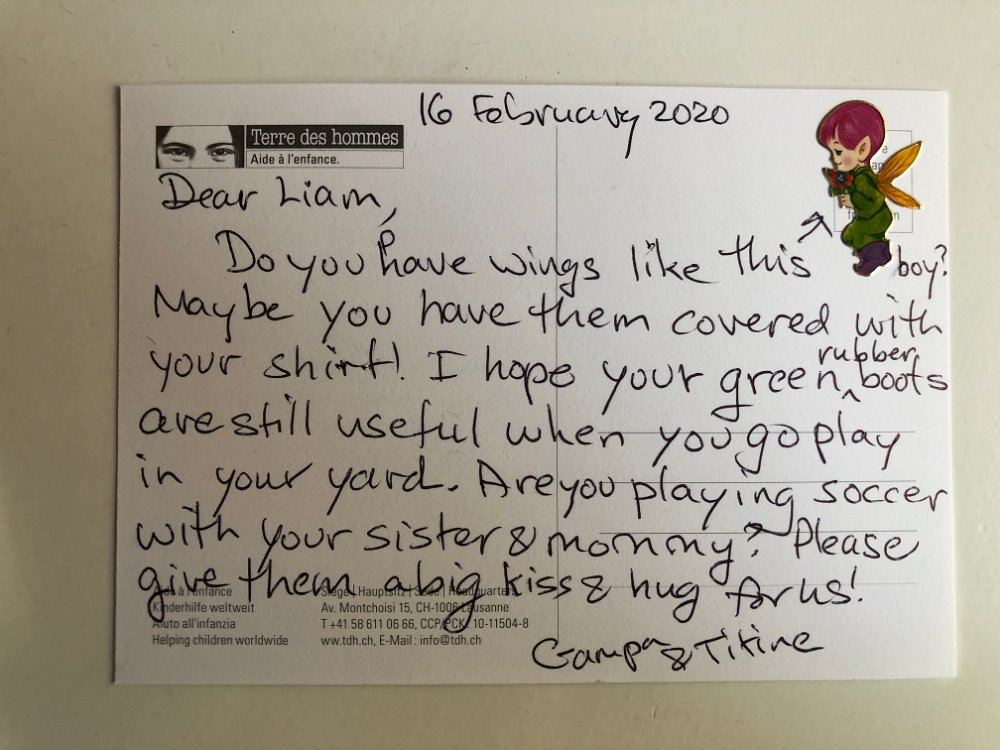 16 February 2020
Terre des hommes
Aide à l'enfance.
Dear Liam,
Do you have wings like this boy?
Maybe you have them covered with
your shirt! I hope your green rubber boots
are still useful when you go play
in your yard. Are you playing soccer
with your sister & mommy? Please
give them a big kiss & hug for us!
Gampa & Titine
Aide à l'enfance
Kinderhilfe weltweit
Aiuto all'infanzia
Helping children worldwide
Siège | Hauptsitz | Sede | Headquarters
Av. Montchoisi 15, CH-1006 Lausanne
T +41 58 611 06 66, CCP/PCK: 10-11504-8
www.tdh.ch, E-Mail: info@tdh.ch